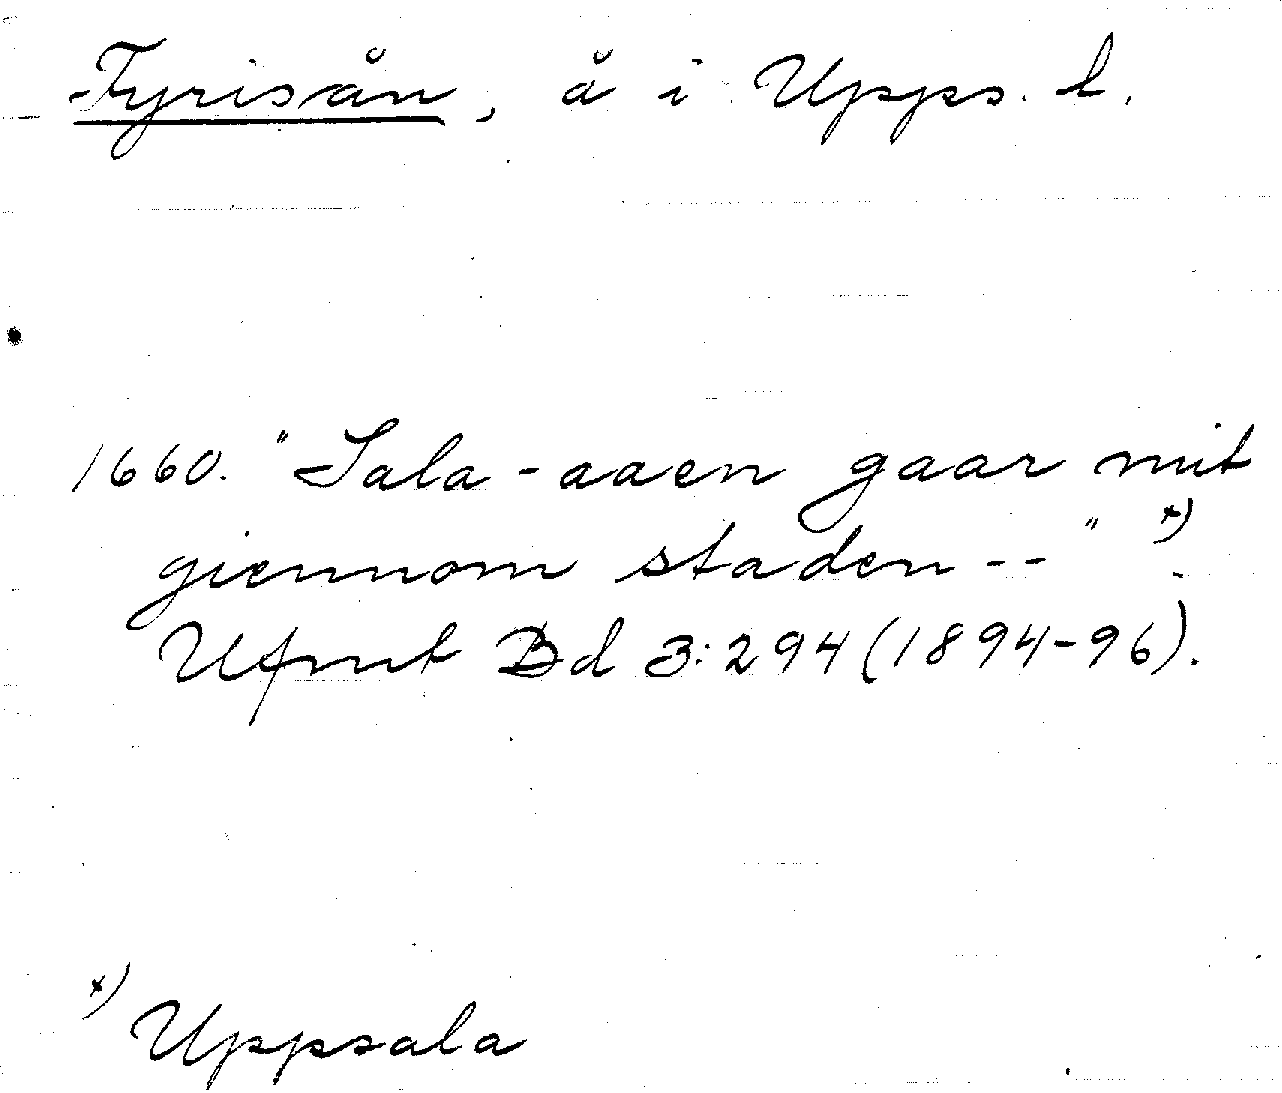 Fyrisån, å i Upps. l.
1660. "Sala-aaen gaar mit
giennom staden--" x)
Ufmt Bd 3:294 (1894-96).
x) Uppsala